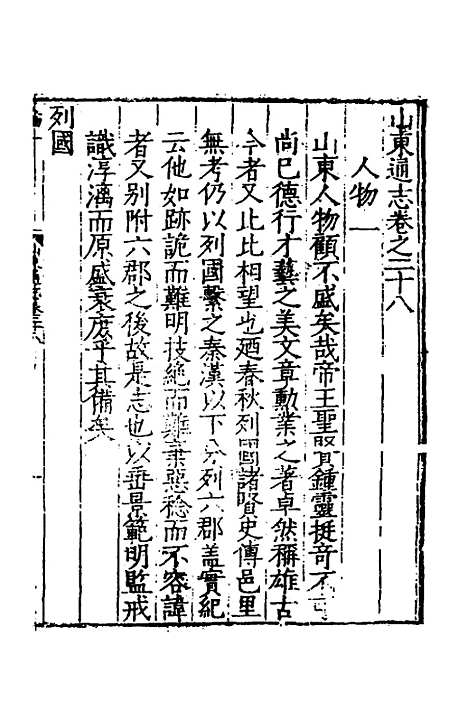 山東通志卷之二十八
人物一
山東人物顧不盛矣哉帝王聖賢鍾靈挺竒不可
尚已德行才藝之美文章勲業之著卓然稱雄古
今者又比比相望也廼春秋列國諸賢史傳邑里
無考仍以列國繫之秦漢以下分列六郡盖實紀
云他如跡詭而難明技絶而難棄惡稔而不容諱
者又别附六郡之後故是志也以垂景範明監戒
識淳漓而原盛衰庶乎其備矣
列國